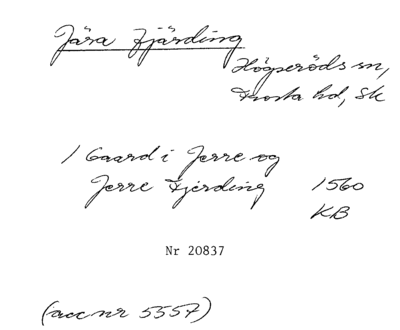 Jära Fjärding
Högseröds sn,
Frosta hd, Sk
1 Gaard i Jerre og
Jerre Fjerding 1560
KB
Nr 20837
(acc nr 5557)